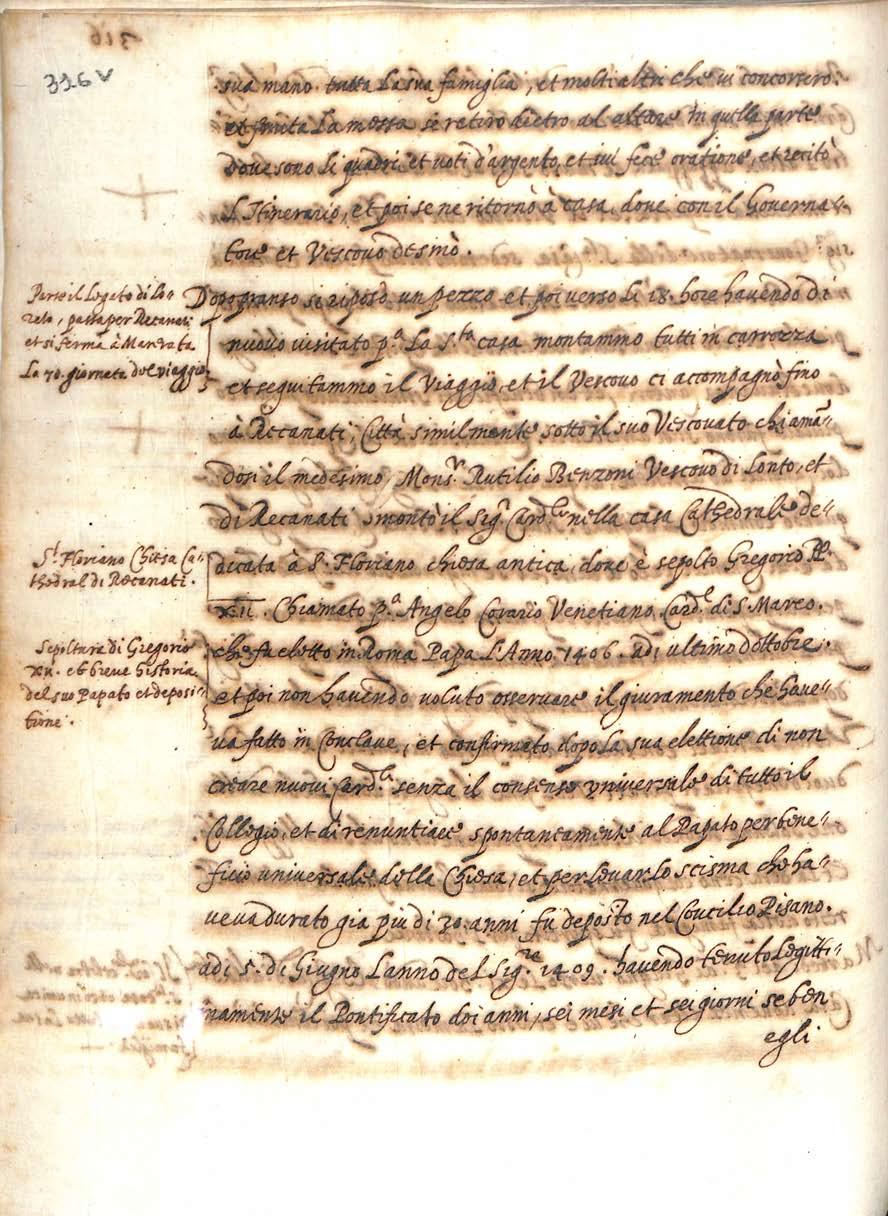 316
316 v
sua mano tutta La sua famiglia, et molti altri che ui concorsero.
et finita La messa se retirò dietro al altare in qulla parte
dove sono li quadri et uoti d'argento, et iui fece oratione, et recitò
L'Itinerario, et poi se ne ritornò à casa, doue con il Governa-
tore et Vescouo desinò.
Parte il Legato di Lo-
reto, passa per Recanati
et si ferma à Macerata
La 70. giornata del viaggio
Dopo pranso si riposò un pezzo et poi verso li 18. hore havendo di
nuouo uisitato p.ª La S.ta casa montammo tutti in carrozza
et seguitammo il Viaggio, et il Vescouo ci accompagnò fino
à Recanati, Città similmente sotto il suo Vescouato chiamā-
dosi il medesimo, Mons.r Rutilio Benzoni Vescouo di Lorito, et
di Recanati smontò il Sig.r Card.le nella casa Cathedrale de-
S.t Floriano Chiesa Ca-
thedral di Recanati.
dicata à S. Floriano chiesa antica, doue è sepolto Gregorio PP.
XII. Chiamato p.ª Angelo Corario Venetiano Card.l di S. Marco.
Sepoltura di Gregorio
XII. et breue historia
del suo Papato et deposi-
tione.
che fu eletto in Roma Papa L'Anno 1406. adi ultimo d'ottobre.
et poi non havendo uoluto osseruare il giuramento che haue-
ua fatto in Conclaue, et confirmato dopo La sua elettione di non
creare nuoui Card.li senza il consenso vniuersale di tutto il
Collegio, et di renuntiare spontaneamente al Papato per bene-
ficio uniuersale della Chiesa, et per leuar lo scisma che ha-
veva durato gia piu di 30. anni fu deposto nel Concilio Pisano.
adi 5. di Giugno L'anno del Sig.re 1409. havendo tenuto Legitti-
mamente il Pontificato doi anni, sei mesi et sei giorni se ben
egli